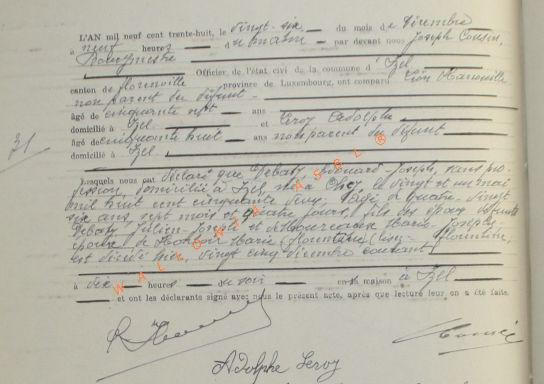 L'AN mil neuf cent trente-huit, le vingt-six du mois de Décembre
à neuf heures du matin par devant nous Joseph
Bourgmestre
Officier de l'état civil de la commune d'Izel
canton de florenville province de Luxembourg, ont comparu Léon
non parent du défunt
âgé de cinquante sept ans
domicilié à Izel et Leroy Adolphe
âgé de cinquante huit ans non parent du défunt
domicilié à Izel
31
Lesquels nous ont déclaré que Debatty Edouard Joseph, sans pro-
fession, domicilié à Izel, né à le vingt et un mai
mil huit cent cinquante deux, âgé de quatre-vingt
six ans, sept mois et quatre jours, fils des époux défunts
Debatty Julien Joseph et Marie Joseph,
époux de Marie
est décédé hier, vingt cinq décembre courant
à dix heures du soir en sa maison à Izel
et ont les déclarants signé avec nous le présent acte, après que lecture leur en a été faite.
WALLONIA ASBL ©
Adolphe Leroy